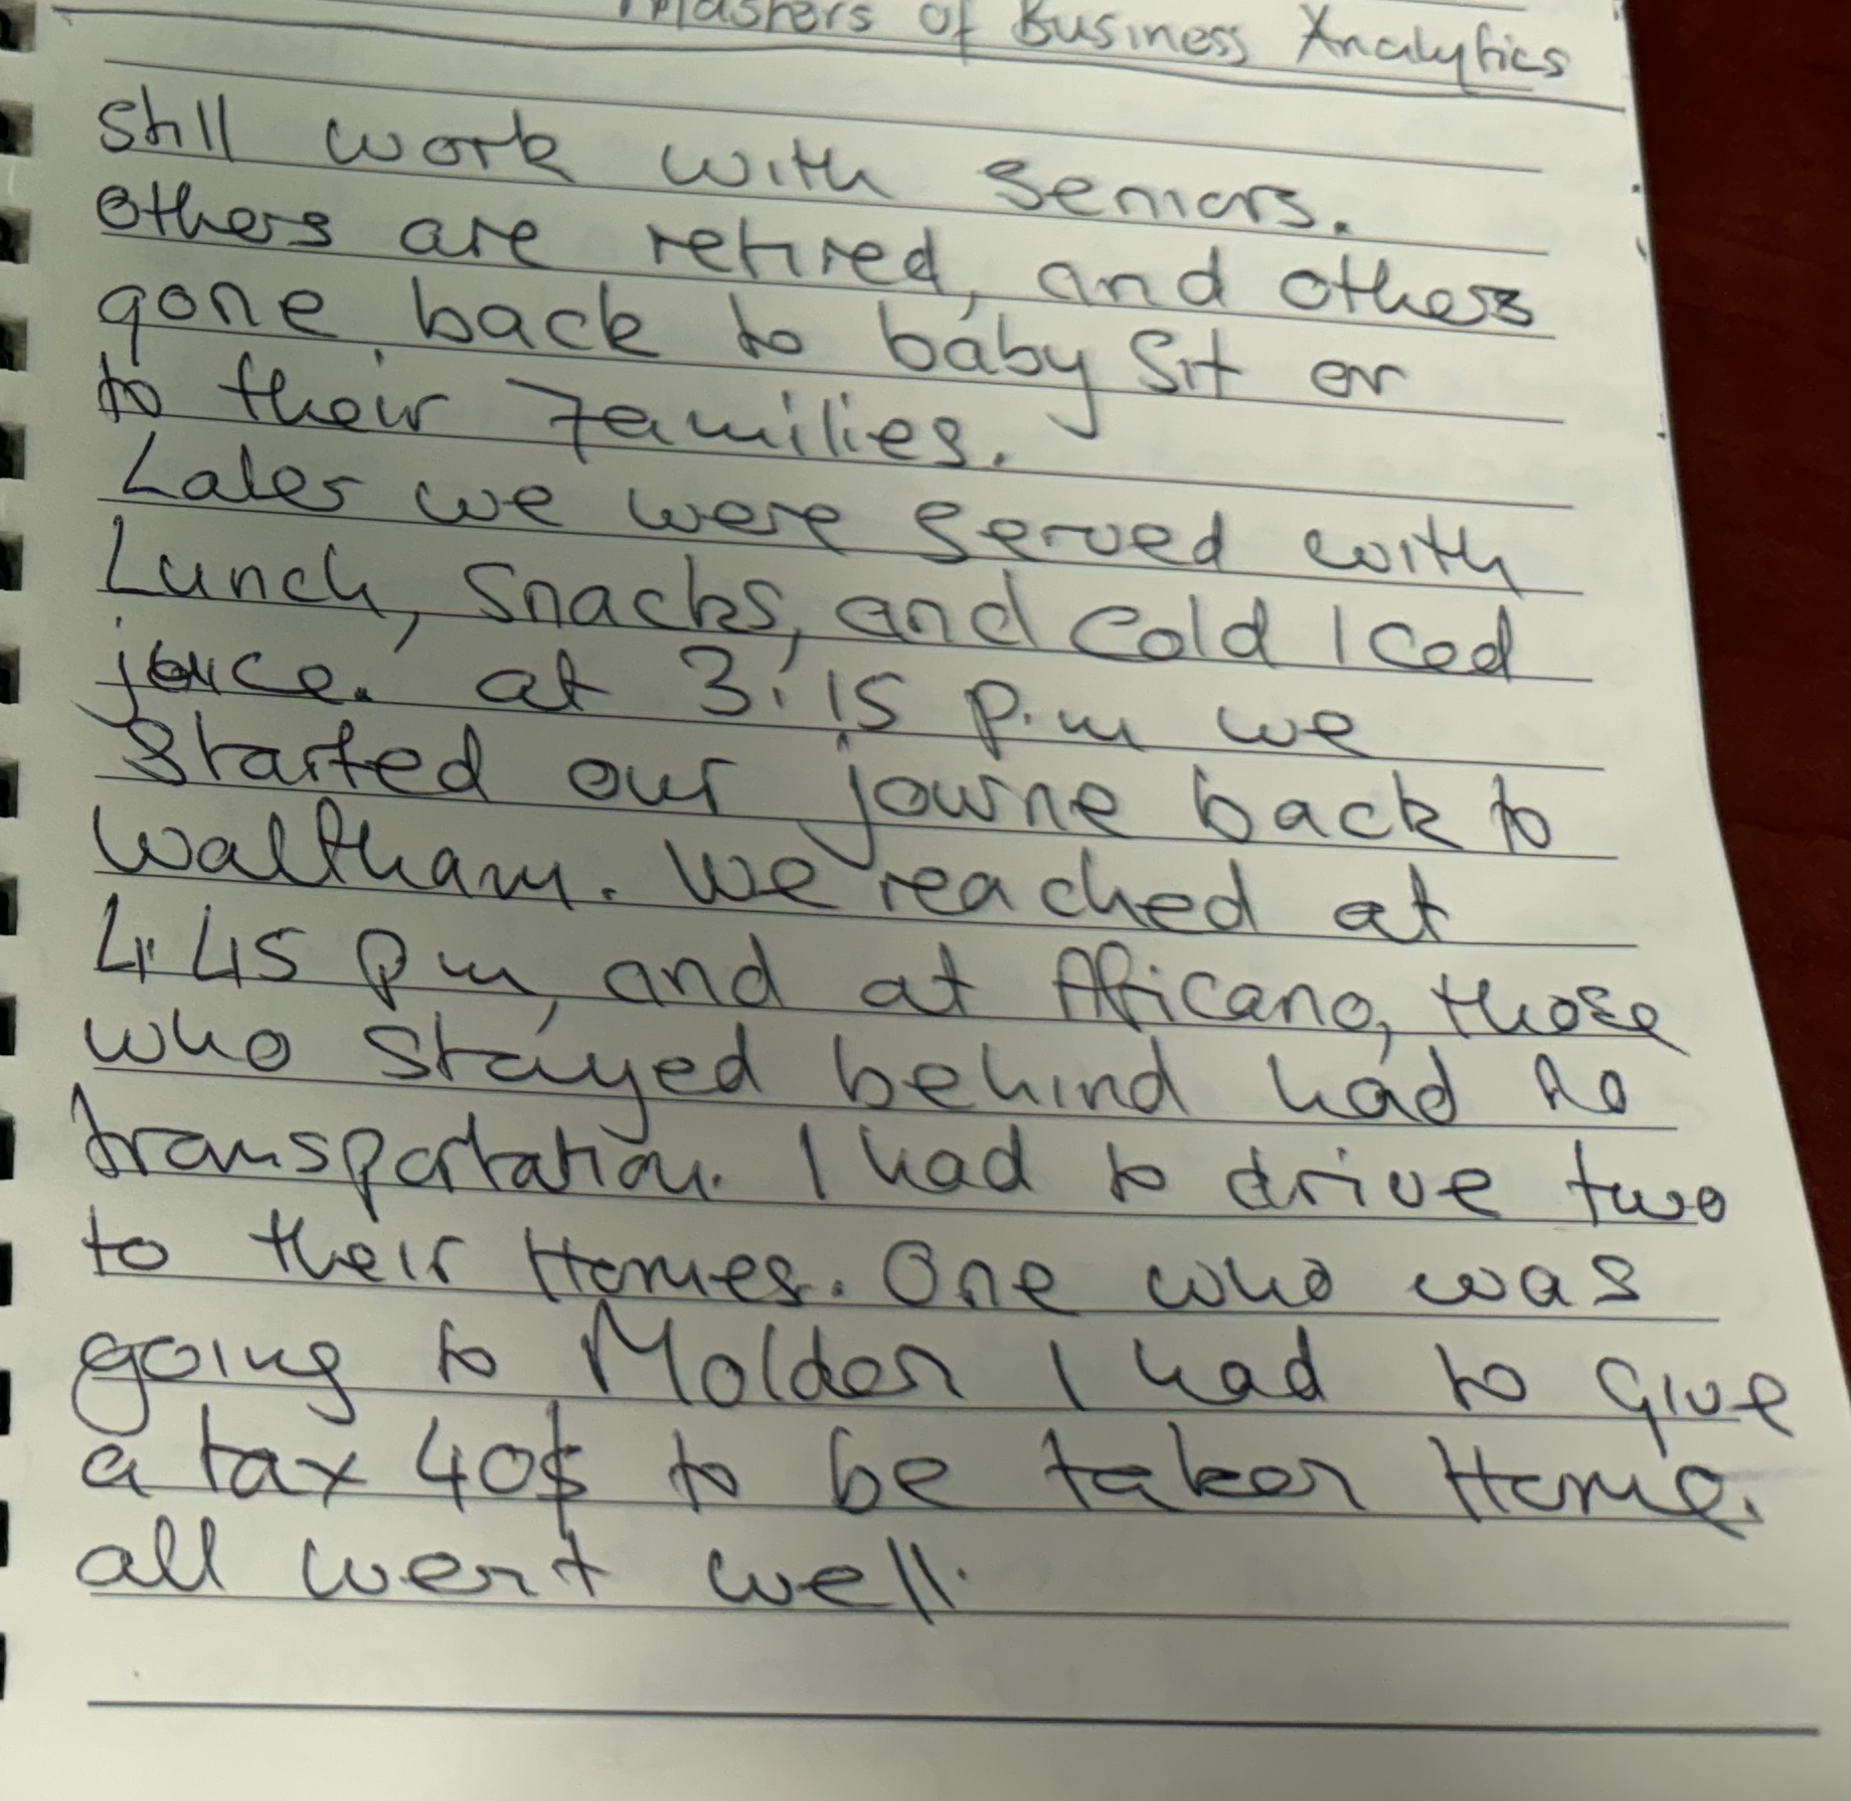 Masters of Business Analytics
still work with seniors.
others are retired, and others
gone back to baby sit or
to their Families.
Later we were served with
Lunch, snacks, and cold Iced
jouce. at 3:15 p.m we
started our journe back to
Waltham. We reached at
4:45 pm, and at Africano, those
who stayed behind had no
transportation. I had to drive two
to their Homes. One who was
going to Molden I had to give
a tax 40$ to be taken Home.
all went well.